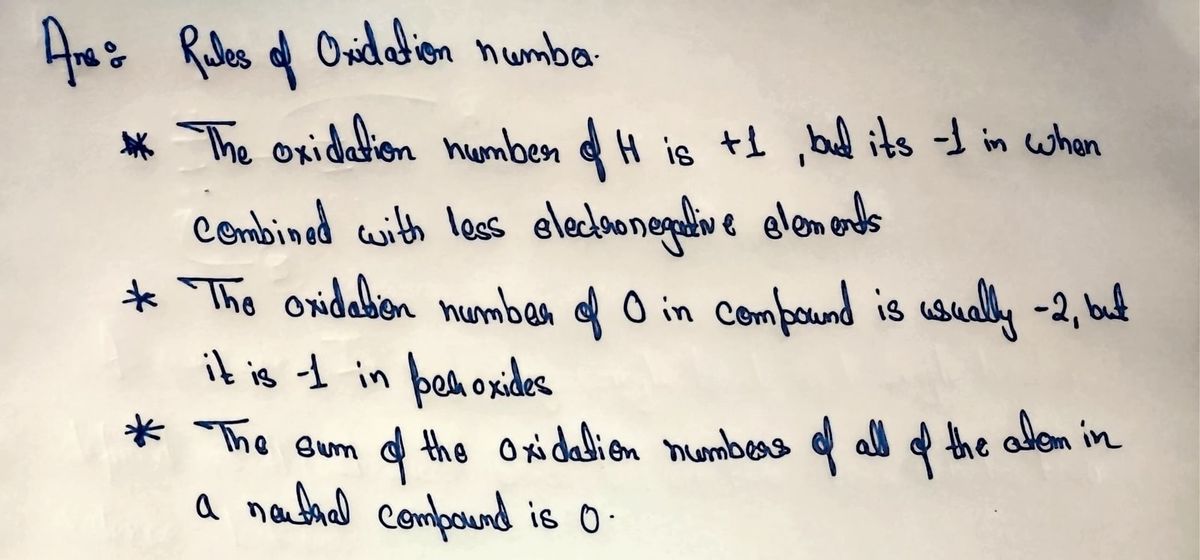 Ans: Rules of Oxidation number.
* The oxidation number of H is +1, but its -1 in when
combined with less electronegative elements
* The oxidation number of O in compound is usually -2, but
it is -1 in peroxides
* The sum of the oxidation numbers of all of the atom in
a neutral compound is 0.